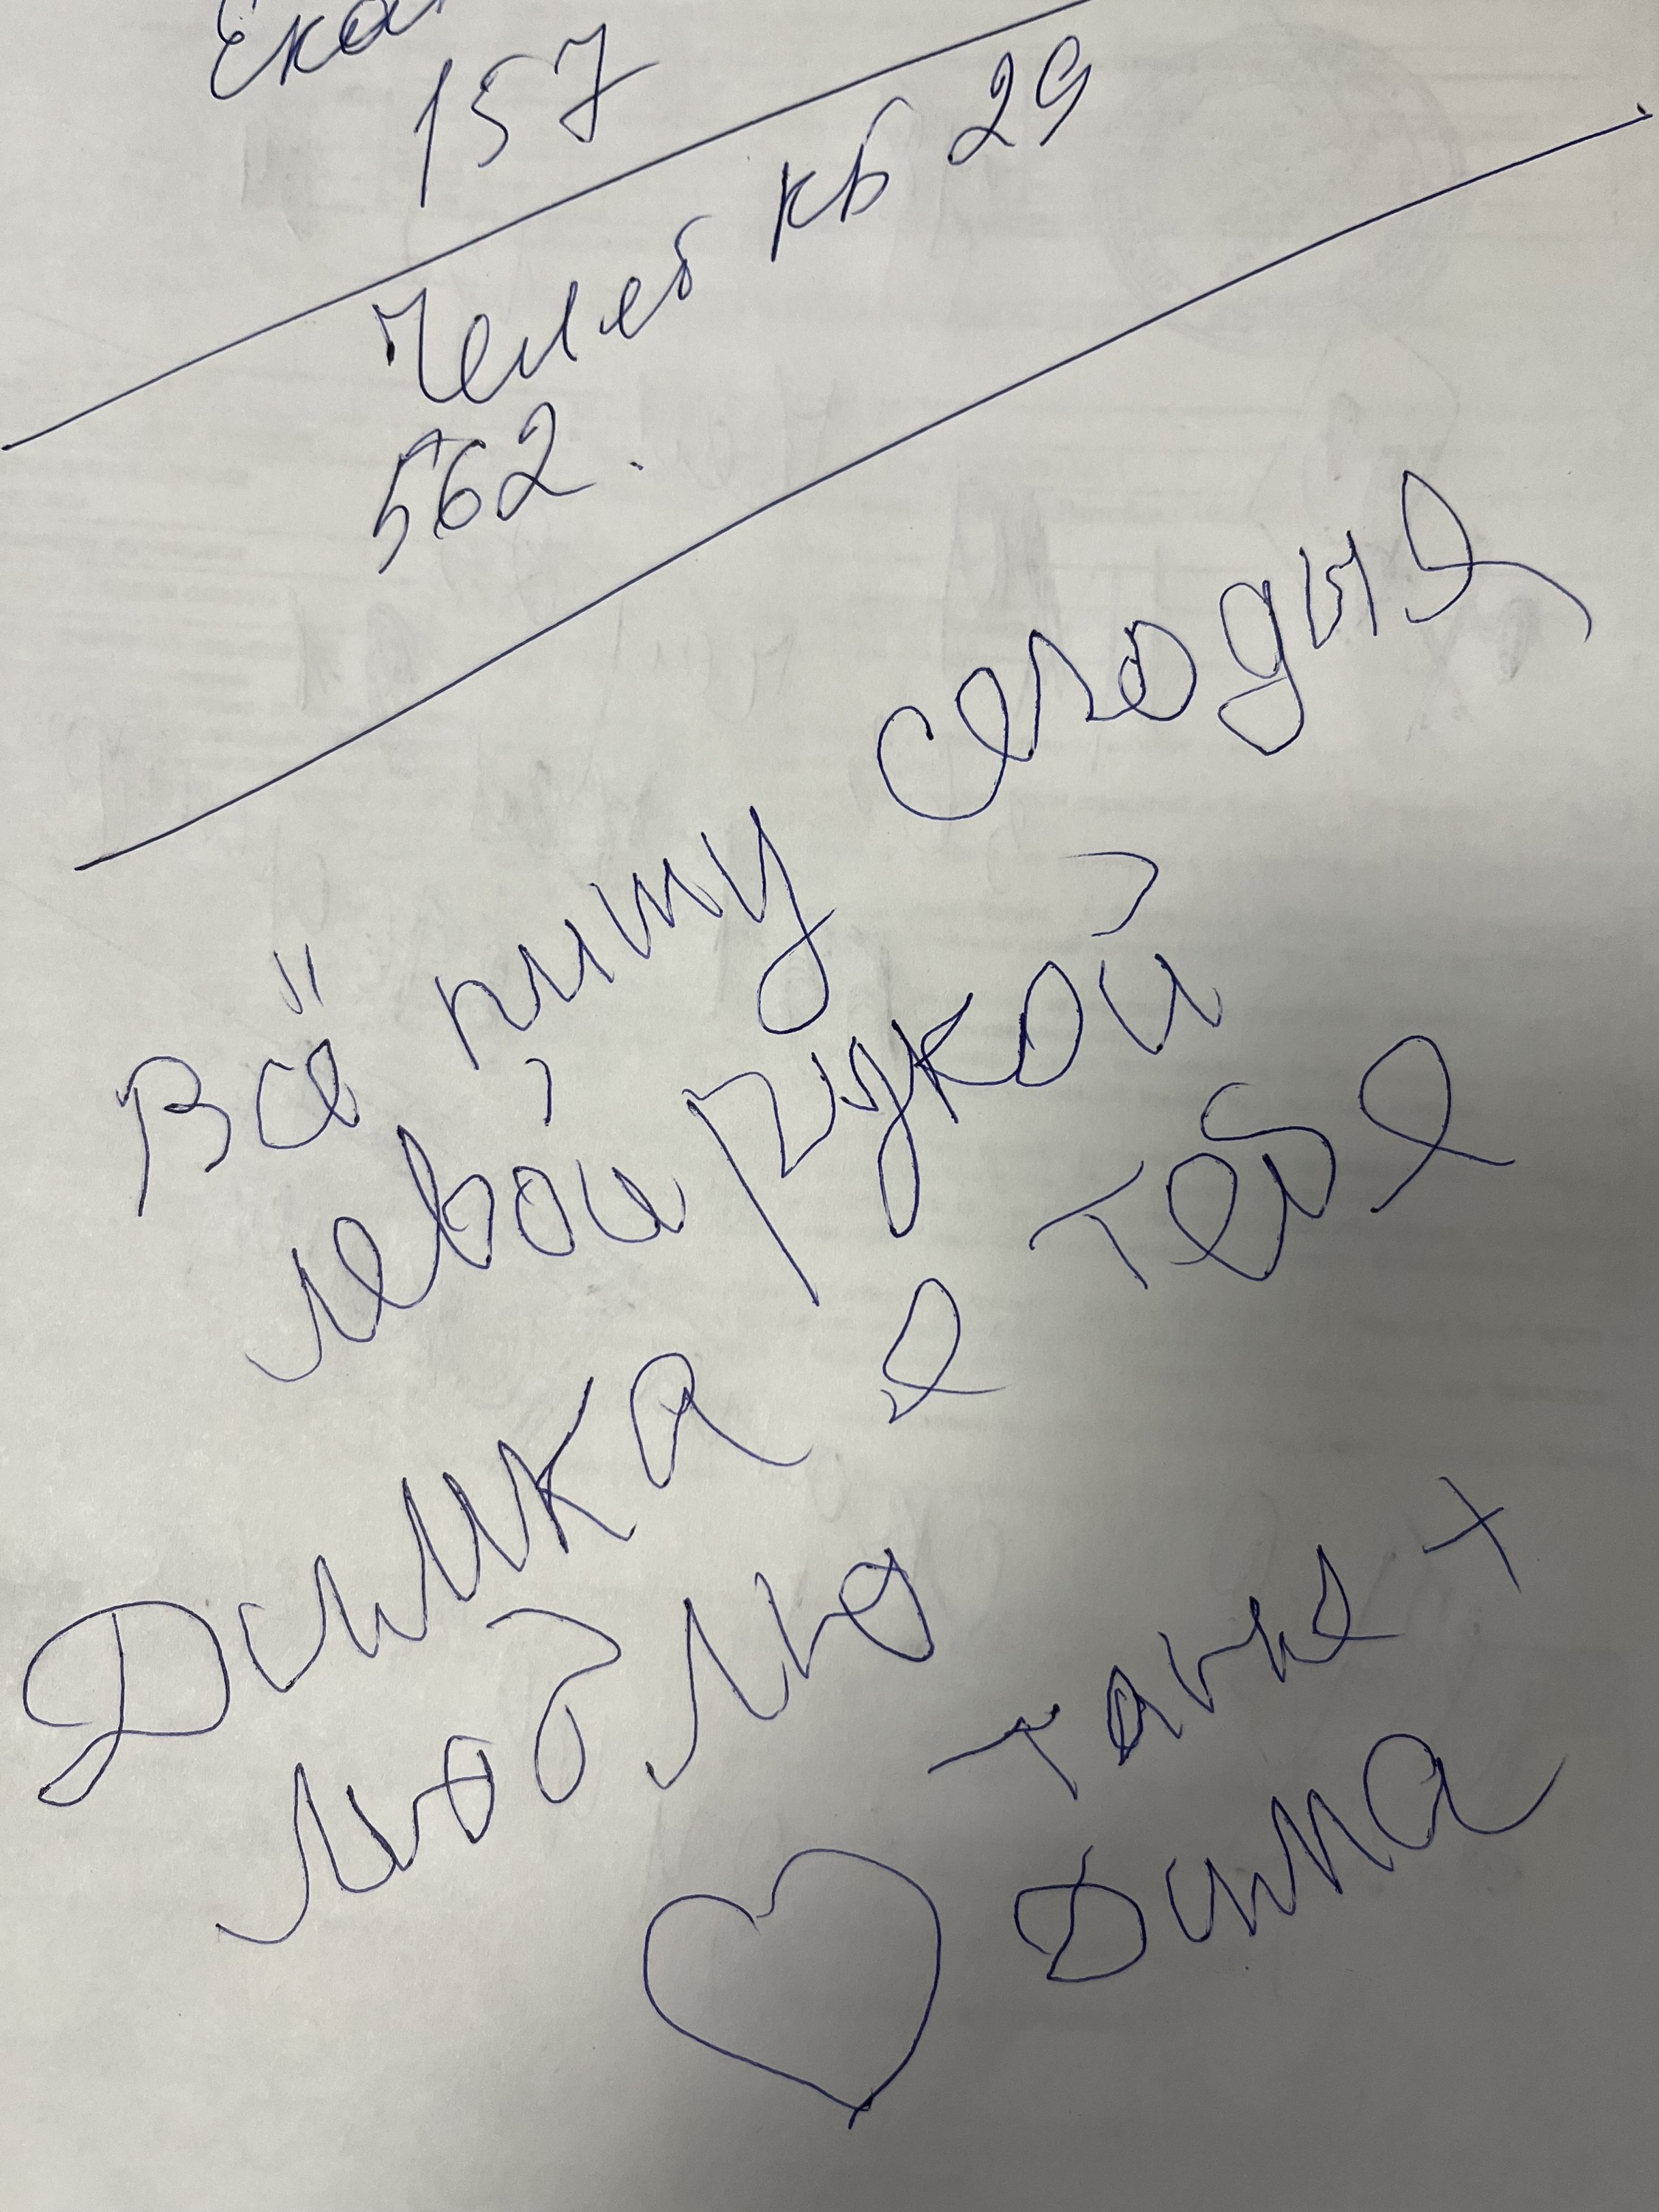 Ека
157
Челяб КБ 29
562.
Всё пишу сегодня
левой рукой
Димка я тебя
люблю
Таня +
Дима